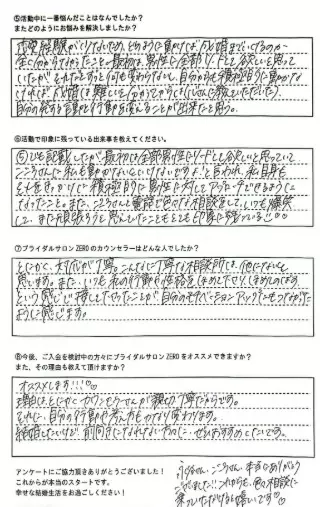 ⑤活動中に一番悩んだことはなんでしたか？
またどのようにお悩みを解決しましたか？
恋愛経験が少ないため、どのように動けば成婚までいけるのか
全く分からなかったこと。最初は、男性に全部リードして欲しいと思って
いたが、それだとずっと何も変わらないし、自分からも積極的に動かな
ければ成婚は難しいと分かってから(こうさんに教えていただいた)
自分の発する言動と行動を変えることが出来たと思う。
⑥活動で印象に残っている出来事を教えてください。
⑤にも記載したが最初は全部男性にリードして欲しいと思っていて
こうさんに私も動かないといけないですよ。と言われ、私自身も
それをきっかけに積極的に男性に対してアプローチできるように
なったこと。また、こうさんと電話で色々な相談をして、いつも爆笑
し、また頑張ろうと思えていたこともとても印象に残っている!
⑦ブライダルサロン ZERO のカウンセラーはどんな人でしたか？
とにかく、対応が丁寧。こんなに丁寧な相談所は、他にないと
思います。また、いつも私の行動や性格をほめて下さり、
という感じで接して下さったことが自分のモチベーションアップにもつながった
ように感じます。
⑧今後、ご入会を検討中の方々にブライダルサロン ZERO をオススメできますか？
また、その理由も教えて頂けますか？
オススメします!!!♡
理由は、とにかくカウンセラーさんが親切、丁寧だからです。
それに、自分の行動や考え方もかなり変わります。
結婚したいけど、前向きになれない方に、ぜひおすすめしたいです。
アンケートにご協力頂きありがとうございました！
これからが本当のスタートです。
幸せな結婚生活をお過ごしください！
こうさん、本当にありがとう
ございました!! これからも、色々相談に
乗っていただけると嬉しいです♡